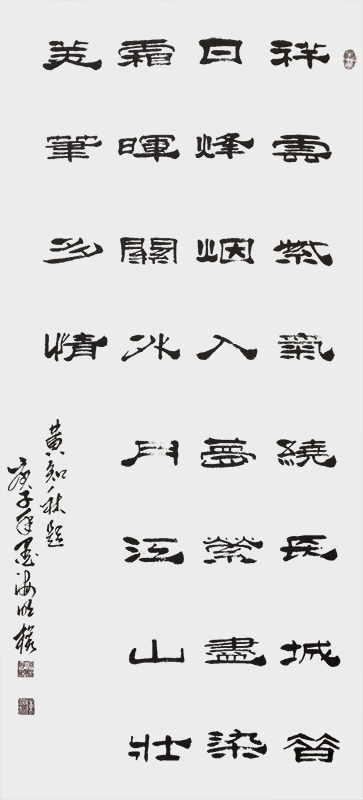 祥雲紫氣繞長城昔
日烽烟入夢縈盡染
霜暉關外月江山壯
美筆多情
黃知秋題
庚子年墨海